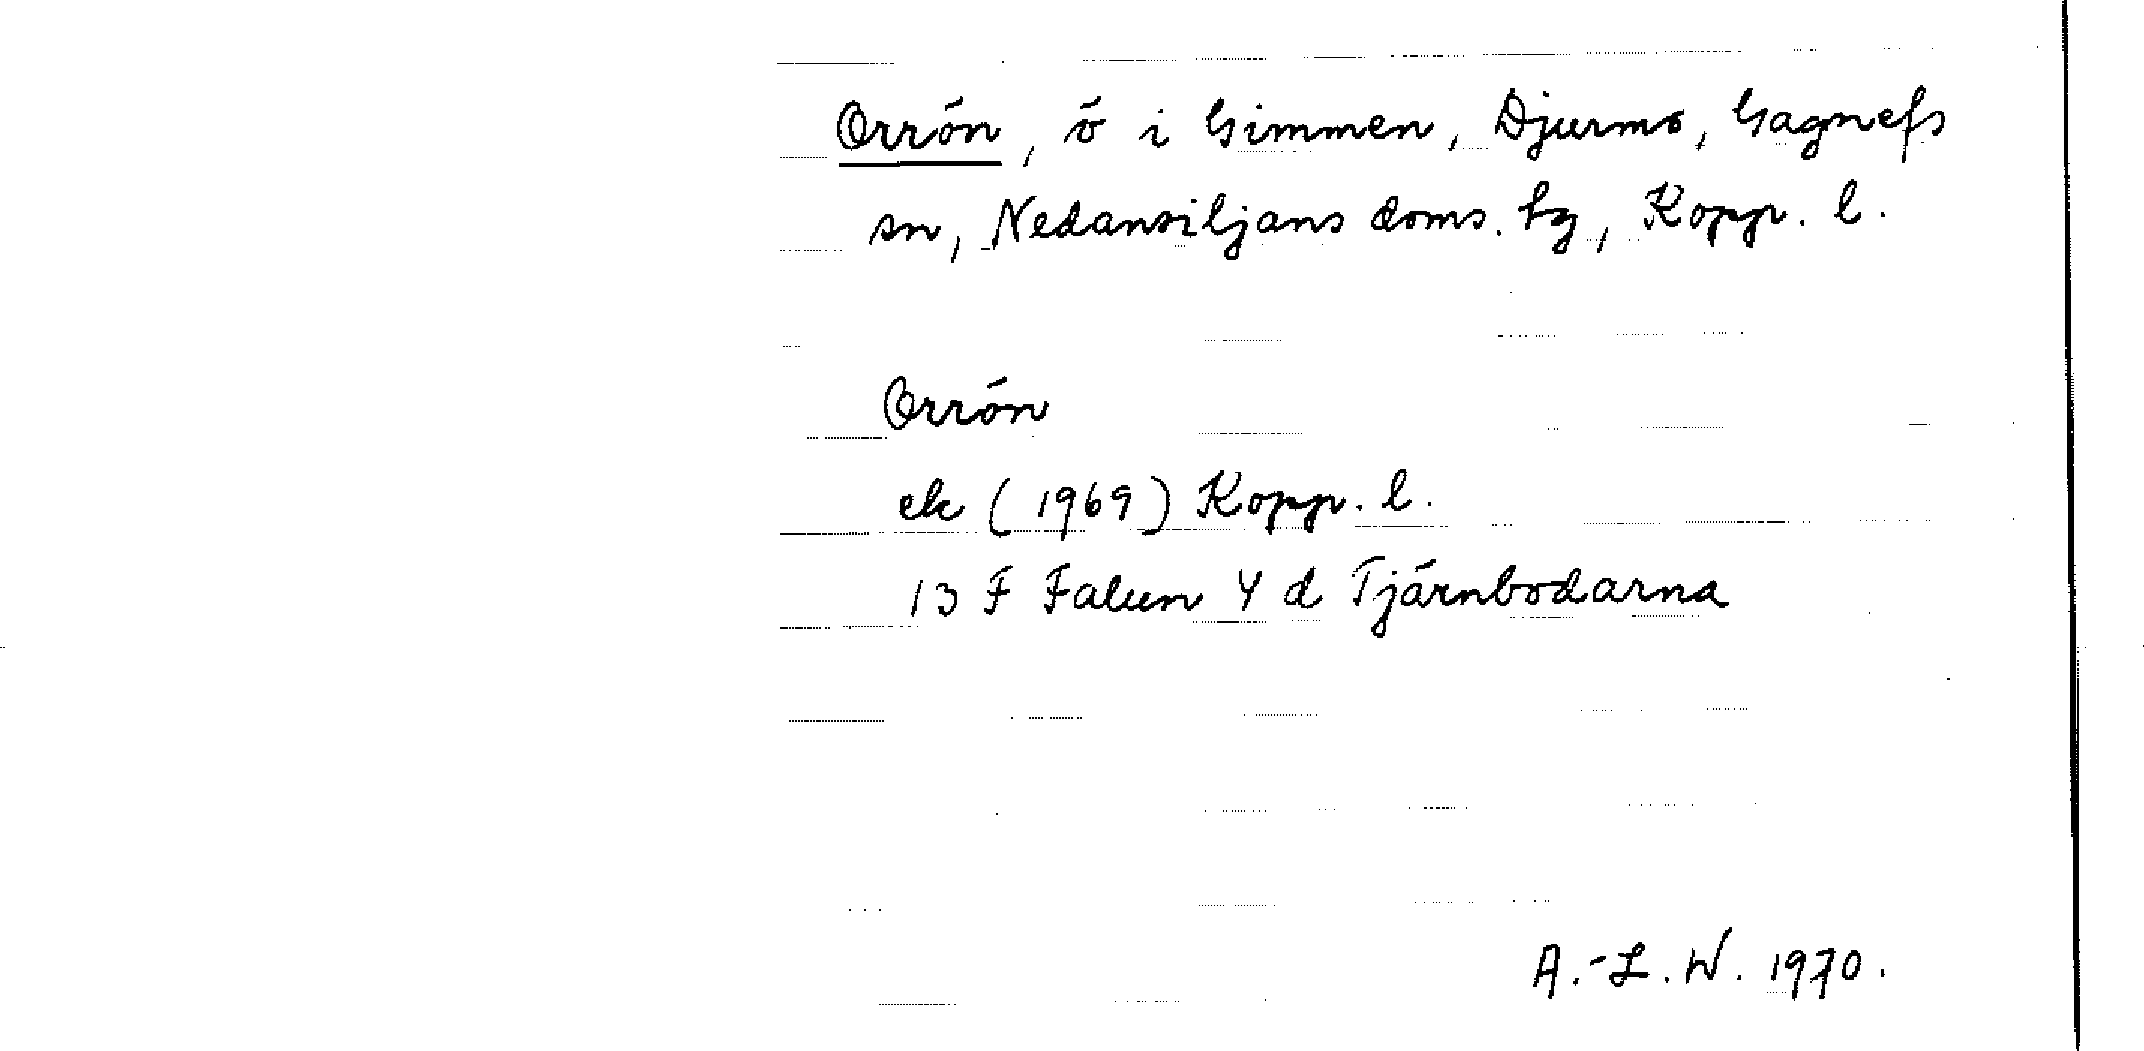 Orrön, ö i Gimmen, Djurmo, Gagnefs
sn, Nedansiljans doms. hg, Kopp. l.
Orrön
ek (1969) Kopp. l.
13 F Falun 4 d Tjärnbodarna
A.-L. W. 1970.